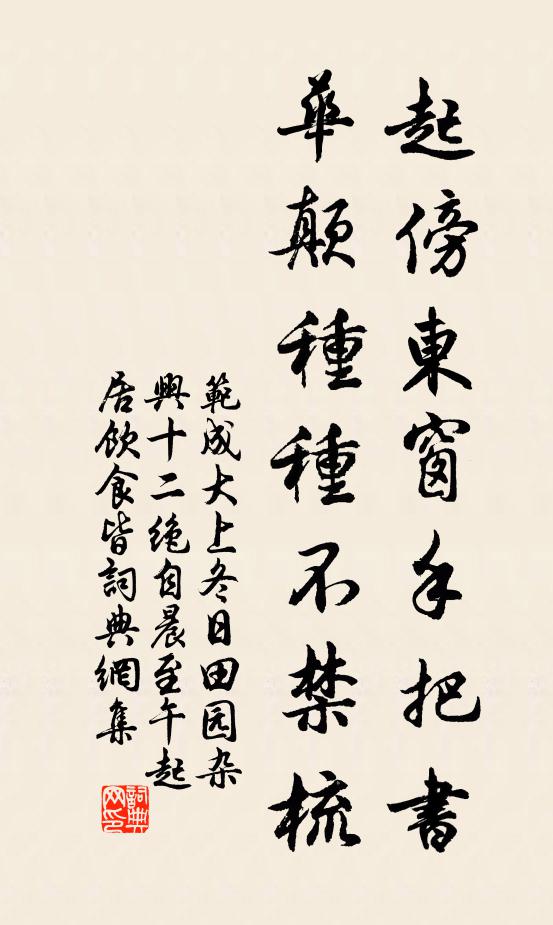 起傍東窗手把書
華顛種種不禁梳
範成大上冬日田园杂
興十二绝自晨至午起
居飲食皆詞典網集
詞典网印